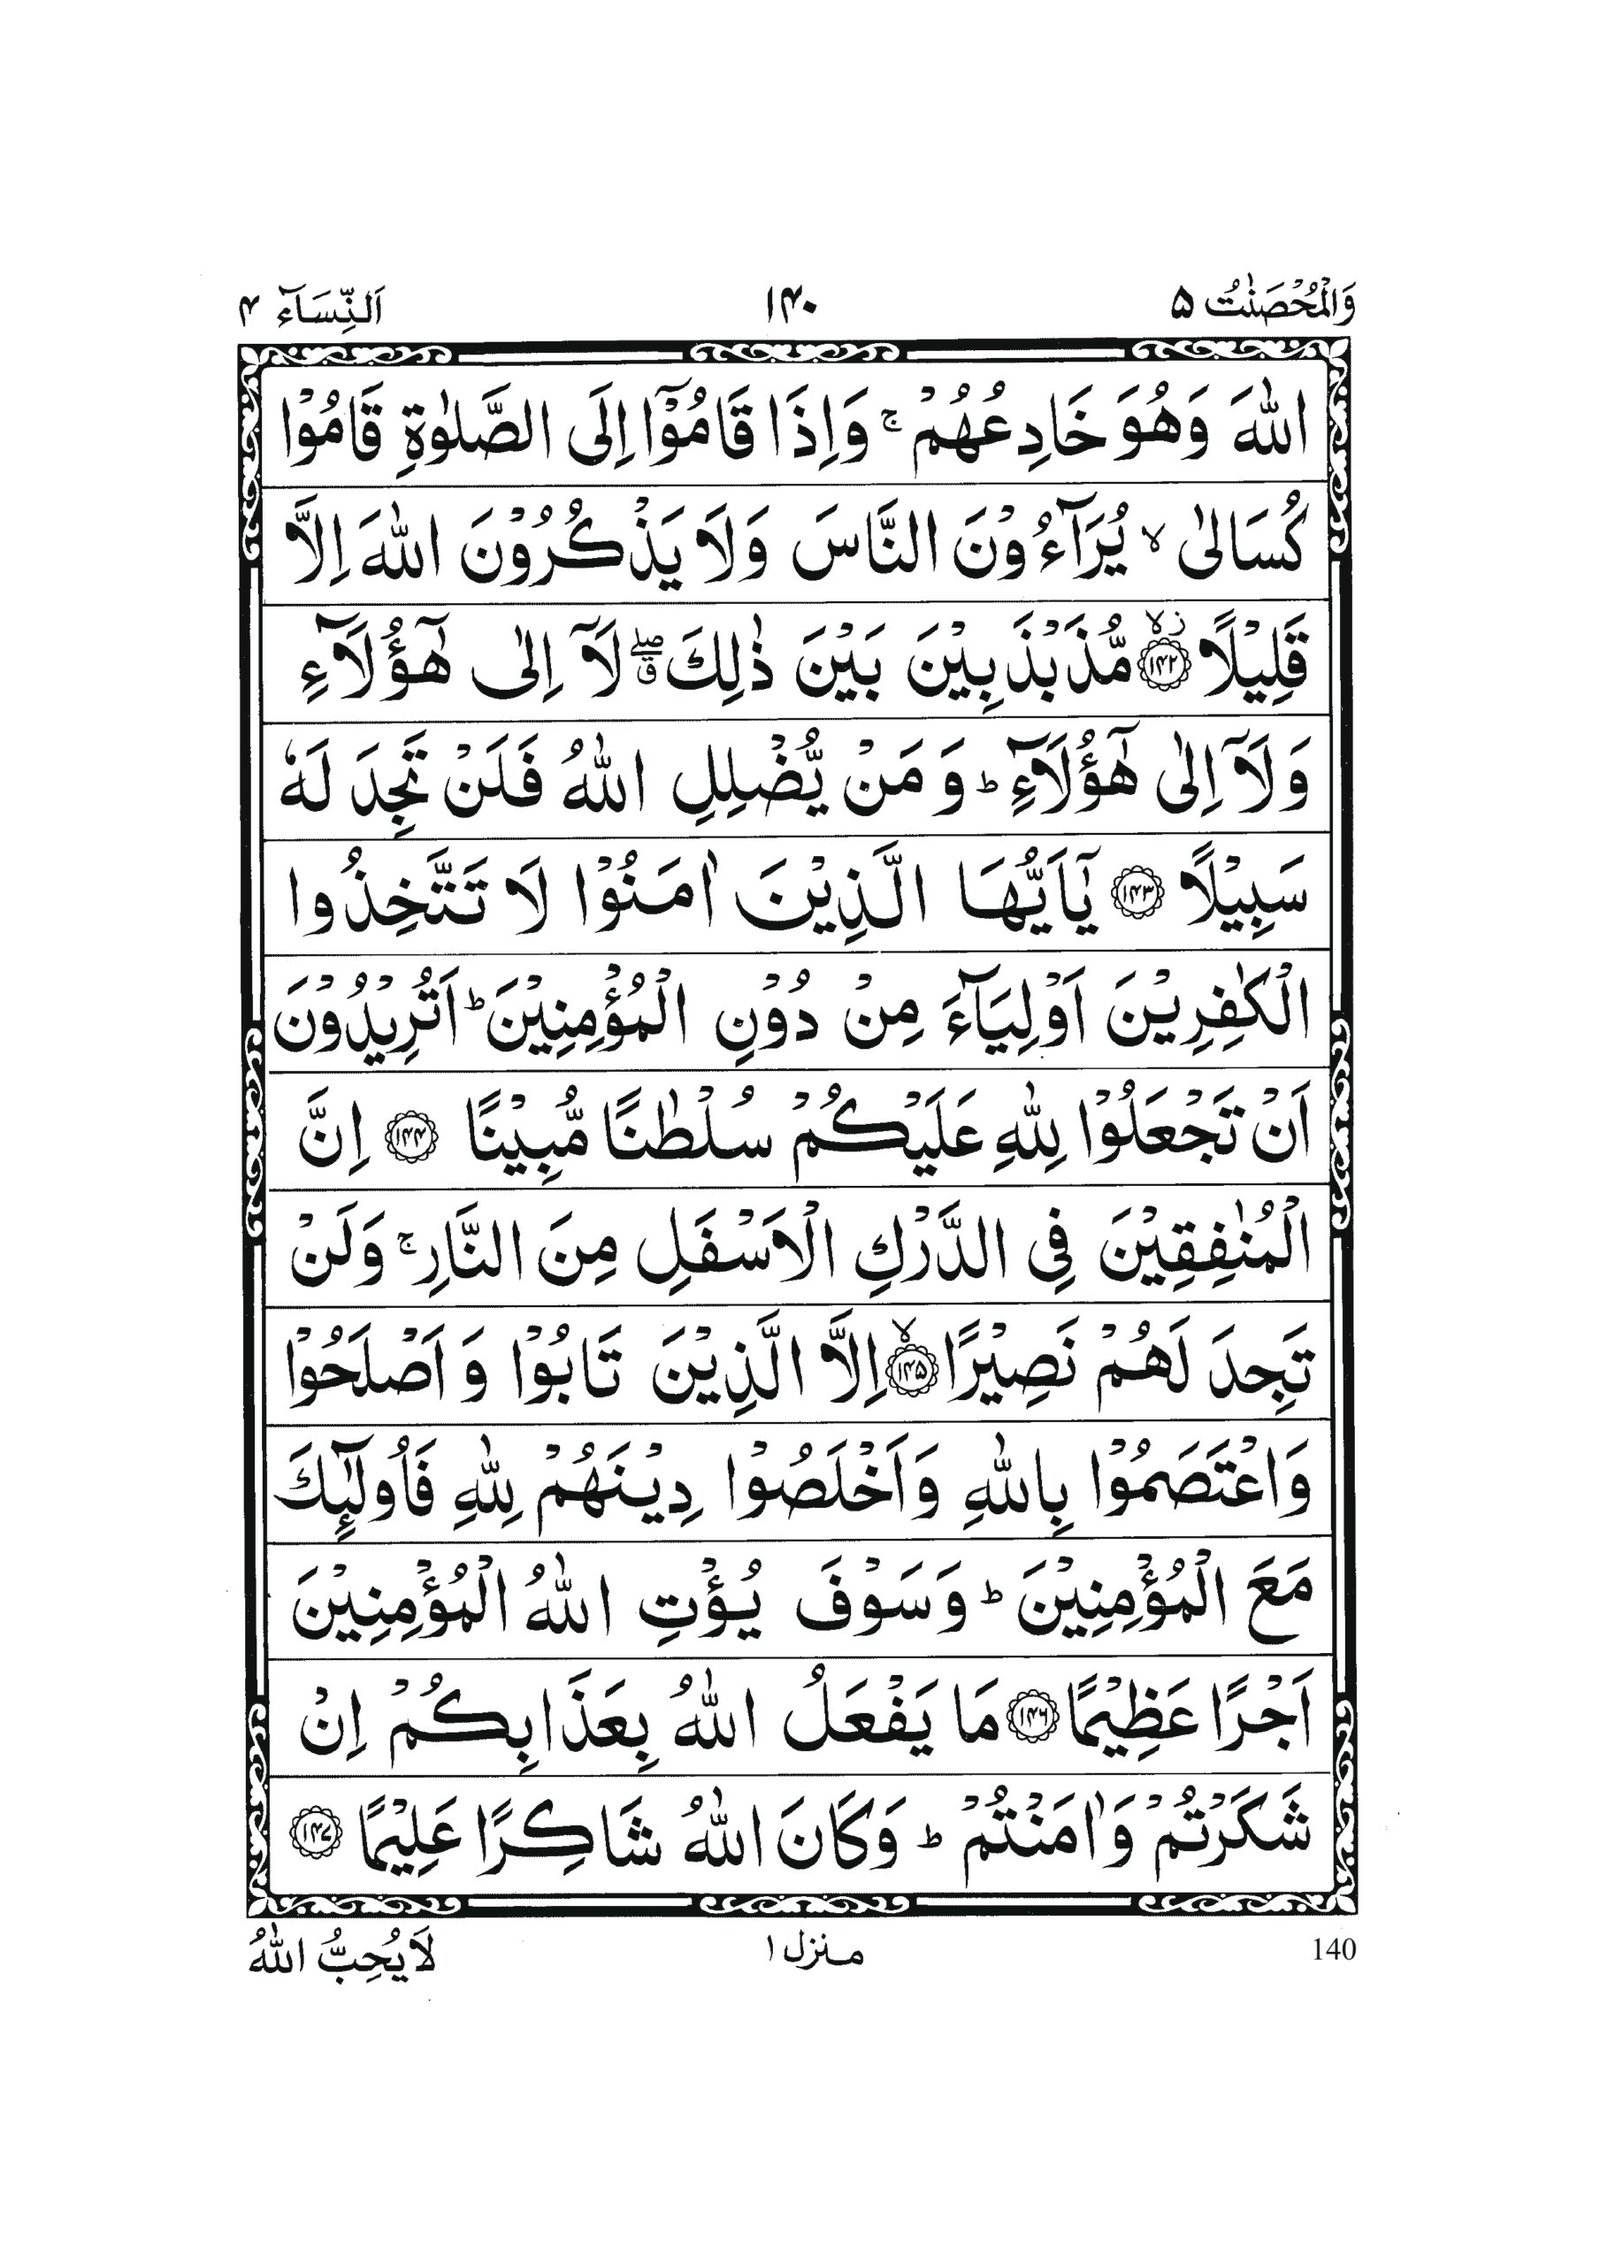 وَالْمُحْصَنٰتُ ۵ ۱۴۰ اَلنِّسَآء ۴
اللّٰهَ وَهُوَ خَادِعُهُمْ ۚ وَاِذَا قَامُوْۤا اِلَى الصَّلٰوةِ قَامُوْا
كُسَالٰى ۙ يُرَآءُوْنَ النَّاسَ وَلَا يَذْكُرُوْنَ اللّٰهَ اِلَّا
قَلِيْلًا ۙز ﴿۱۴۲﴾ مُّذَبْذَبِيْنَ بَيْنَ ذٰلِكَ ۖق لَاۤ اِلٰى هٰۤؤُلَآءِ
وَلَاۤ اِلٰى هٰۤؤُلَآءِ ؕ وَ مَنْ يُّضْلِلِ اللّٰهُ فَلَنْ تَجِدَ لَهٗ
سَبِيْلًا ﴿۱۴۳﴾ يٰۤاَيُّهَا الَّذِيْنَ اٰمَنُوْا لَا تَتَّخِذُوا
الْكٰفِرِيْنَ اَوْلِيَآءَ مِنْ دُوْنِ الْمُؤْمِنِيْنَ ؕ اَتُرِيْدُوْنَ
اَنْ تَجْعَلُوْا لِلّٰهِ عَلَيْكُمْ سُلْطٰنًا مُّبِيْنًا ﴿۱۴۴﴾ اِنَّ
الْمُنٰفِقِيْنَ فِى الدَّرْكِ الْاَسْفَلِ مِنَ النَّارِ ۚ وَلَنْ
تَجِدَ لَهُمْ نَصِيْرًا ۙ ﴿۱۴۵﴾ اِلَّا الَّذِيْنَ تَابُوْا وَ اَصْلَحُوْا
وَاعْتَصَمُوْا بِاللّٰهِ وَاَخْلَصُوْا دِيْنَهُمْ لِلّٰهِ فَاُولٰٓئِكَ
مَعَ الْمُؤْمِنِيْنَ ؕ وَ سَوْفَ يُؤْتِ اللّٰهُ الْمُؤْمِنِيْنَ
اَجْرًا عَظِيْمًا ﴿۱۴۶﴾ مَا يَفْعَلُ اللّٰهُ بِعَذَابِكُمْ اِنْ
شَكَرْتُمْ وَاٰمَنْتُمْ ؕ وَكَانَ اللّٰهُ شَاكِرًا عَلِيْمًا ﴿۱۴۷﴾
140 منزل ۱ لَا يُحِبُّ اللّٰهُ